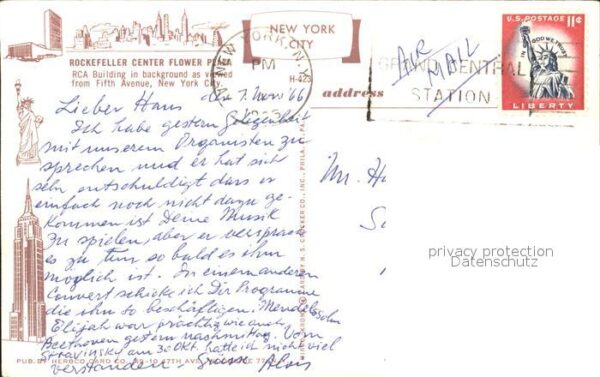 NEW YORK
CITY
ROCKEFELLER CENTER FLOWER
RCA Building in background as viewed
from Fifth Avenue, New York City.
H-423
address
PM
AIR
MAIL
GRAND CENTRAL
STATION
U.S. POSTAGE 11¢
IN GOD WE TRUST
LIBERTY
Lieber Hans den 7. Nov 66
Ich habe gestern Gelegenheit
mit unserem Organisten zu
sprechen und er hat sich
sehr entschuldigt dass er
einfach noch nicht dazu ge-
kommen ist Deine Musik
zu spielen, aber er versprach
es zu tun so bald es ihm
möglich ist. In einem anderen
Couvert schicke ich Dir Programme
die ihn so beschäftigen. Mendelssohn
Elijah war prächtig wie auch
Beethoven gestern nachmittag. Vom
Stravinsky am 30 Okt. hatte ich nicht viel
verstanden - Gruss Alois
Mr. H
PUB. BY HERBCO CARD CO. 47TH AVE
privacy protection
Datenschutz